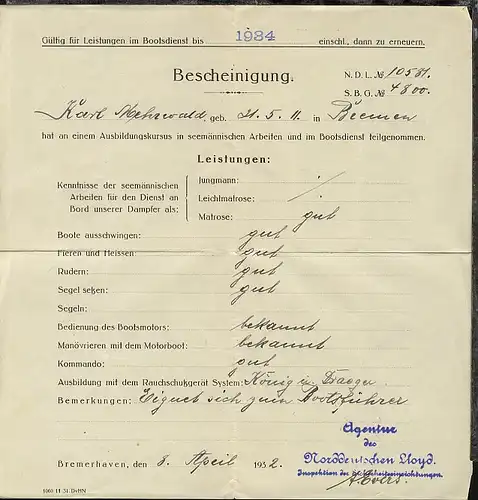 Gültig für Leistungen im Bootsdienst bis 1934 einschl., dann zu erneuern.
Bescheinigung.
N. D. L. № 10581.
S. B. G. № 4800.
Karl Mehrwald, geb. 21. 5. 11. in Bremen
hat an einem Ausbildungskursus in seemännischen Arbeiten und im Bootsdienst teilgenommen.
Leistungen:
Kenntnisse der seemännischen Arbeiten für den Dienst an Bord unserer Dampfer als:
Jungmann: /
Leichtmatrose: /
Matrose: gut
Boote ausschwingen: gut
Fieren und Heissen: gut
Rudern: gut
Segel setzen: gut
Segeln:
Bedienung des Bootsmotors: bekannt
Manövrieren mit dem Motorboot: bekannt
Kommando: gut
Ausbildung mit dem Rauchschutzgerät System: König u. Draeger
Bemerkungen: Eignet sich zum Bootsführer
Agentur
des
Norddeutschen Lloyd.
Inspektion der
Bremerhaven, den 8. April 1932
1000 11 31. DrHN